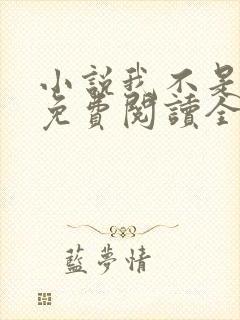 小說我不是
免費閱讀全
藍夢情